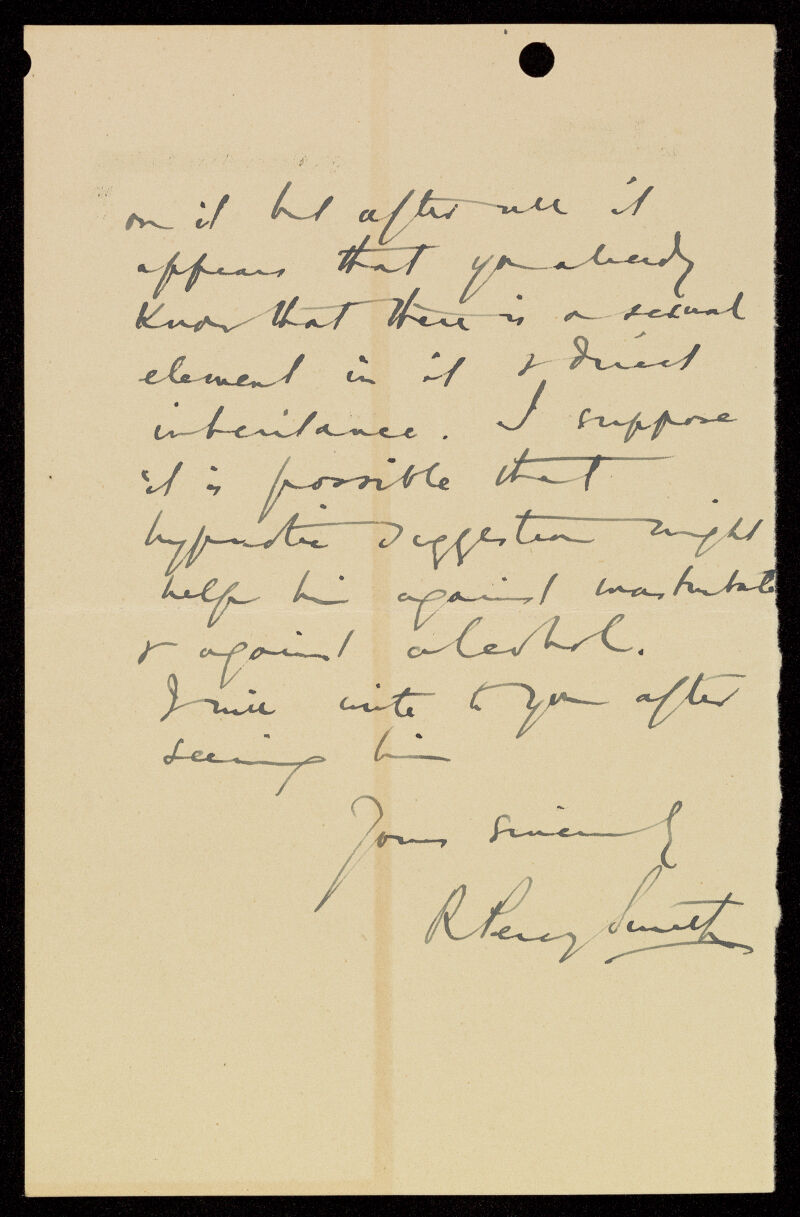 on it but after all it
appears that you already
know that there is a sexual
element in it & direct
inheritance. I suppose
it is possible that
hypnotic suggestion might
help him against masturbate
& against alcohol.
I will write to you after
seeing him
Yours sincerely
R Percy Smith